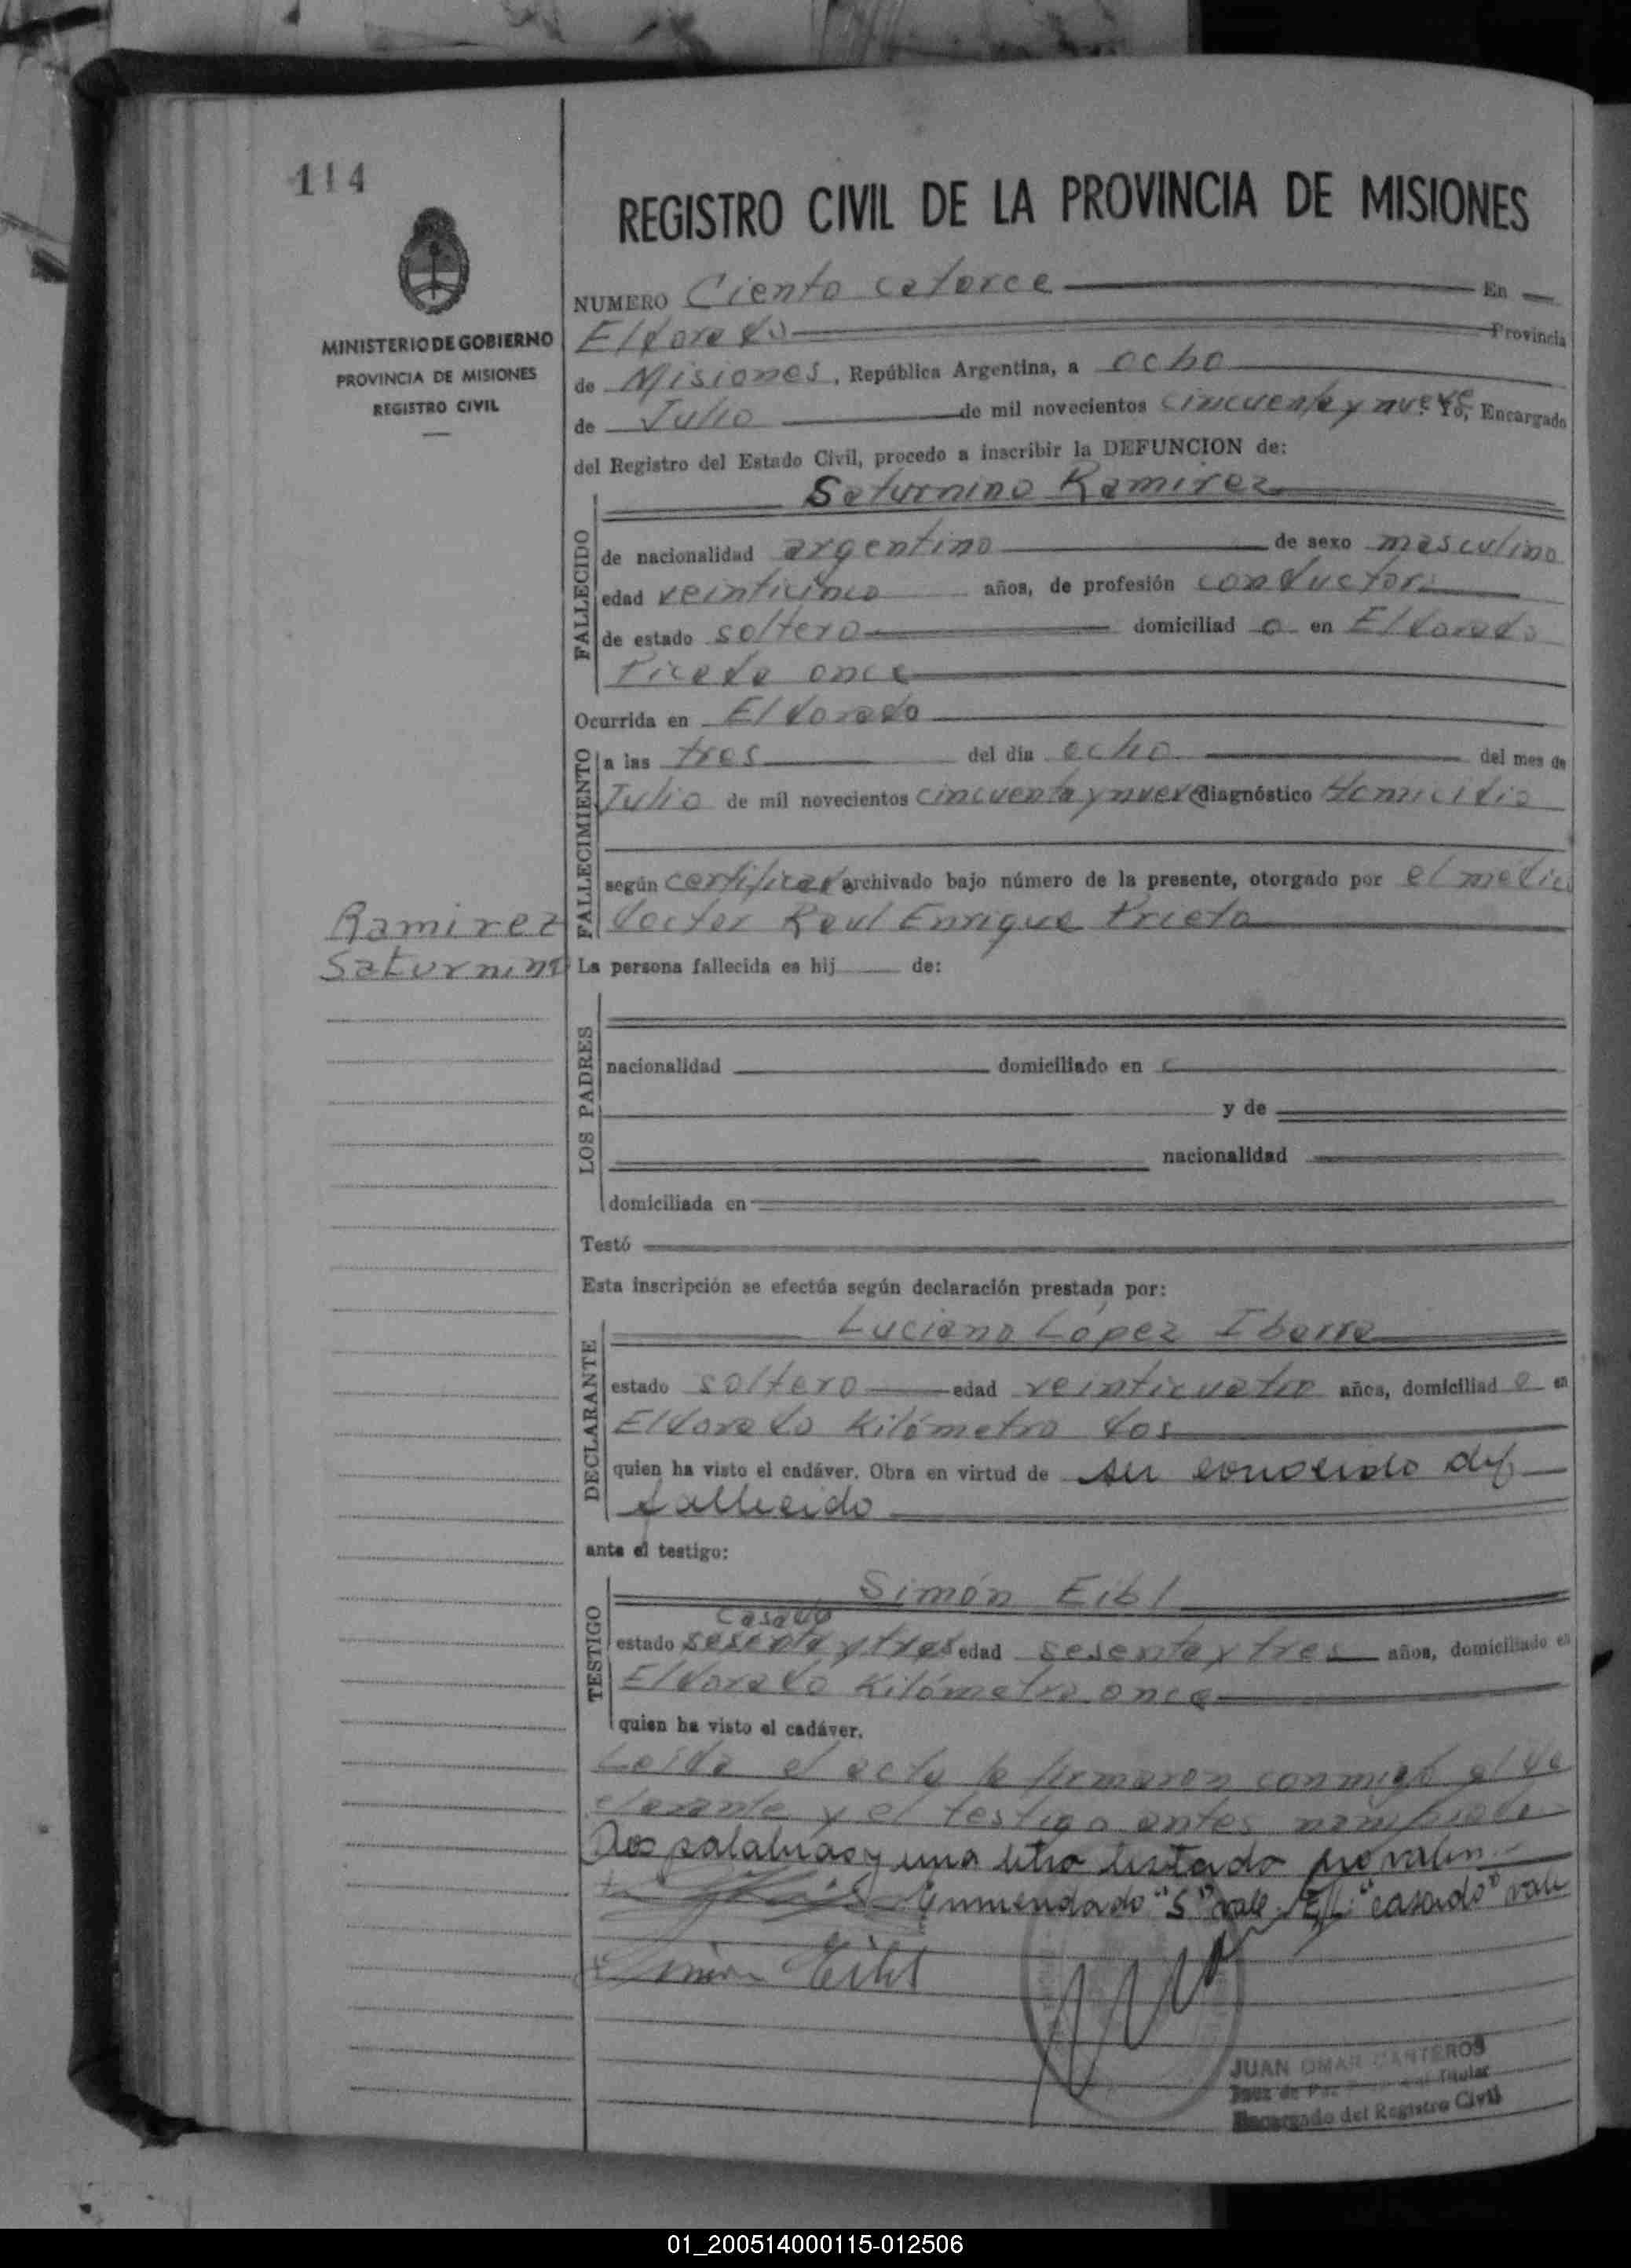 114
REGISTRO CIVIL DE LA PROVINCIA DE MISIONES
MINISTERIO DE GOBIERNO
PROVINCIA DE MISIONES
REGISTRO CIVIL
NUMERO Ciento catorce En
Eldorado Provincia
de Misiones, República Argentina, a ocho
de Julio de mil novecientos cincuenta y nueve Yo, Encargado
del Registro del Estado Civil, procedo a inscribir la DEFUNCION de:
Saturnino Ramirez
FALLECIDO
de nacionalidad argentino de sexo masculino
edad veinticinco años, de profesión conductor
de estado soltero domiciliad o en Eldorado
Picada once
Ocurrida en Eldorado
FALLECIMIENTO
a las tres del día ocho del mes de
Julio de mil novecientos cincuenta y nueve diagnóstico Homicidio
según certificad archivado bajo número de la presente, otorgado por el medico
doctor Raul Enrique Prieto
Ramirez
Saturnino
La persona fallecida es hij de:
LOS PADRES
nacionalidad domiciliado en
y de
nacionalidad
domiciliada en
Testó
Esta inscripción se efectúa según declaración prestada por:
Luciano López Ibarra
DECLARANTE
estado soltero edad veinticuatro años, domiciliad o en
Eldorado Kilómetro dos
quien ha visto el cadáver. Obra en virtud de ser conocido del
fallecido
ante el testigo:
Simón Eibl
TESTIGO
casado
estado sesenta y tres edad sesenta y tres años, domiciliado en
Eldorado Kilómetro once
quien ha visto el cadáver.
Leída el acta la firmaron conmigo el de
clarante y el testigo antes
Dos palabras y una letra testado no valen
Enmendado "S" vale. E/L: "casado" vale
Simón Eibl
JUAN OMAR CANTEROS
Juez de Paz Titular
Encargado del Registro Civil
01_200514000115-012506